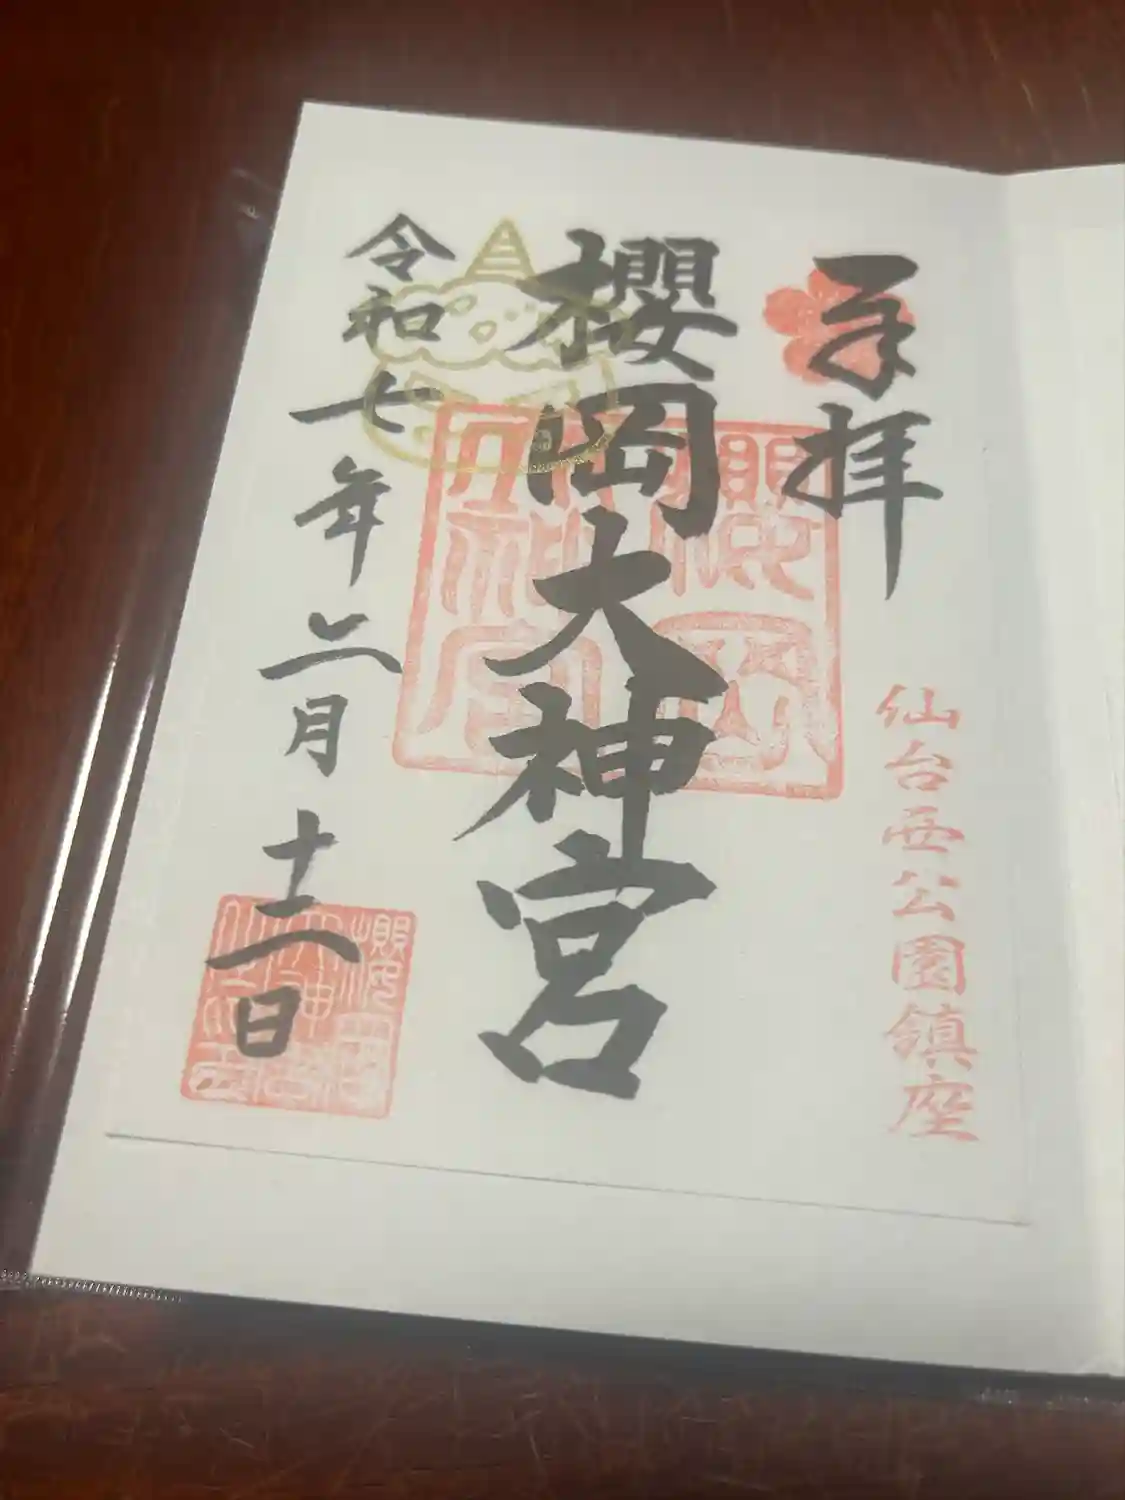 奉拝
仙台西公園鎮座
櫻岡大神宮
櫻岡
大神宮
令和七年二月十二日